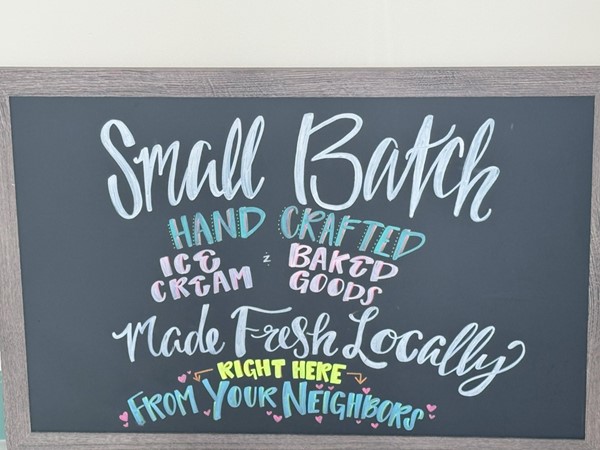 Small Batch
HAND CRAFTED
ICE BAKED
CREAM GOODS
Made Fresh Locally
RIGHT HERE
FROM YOUR NEIGHBORS